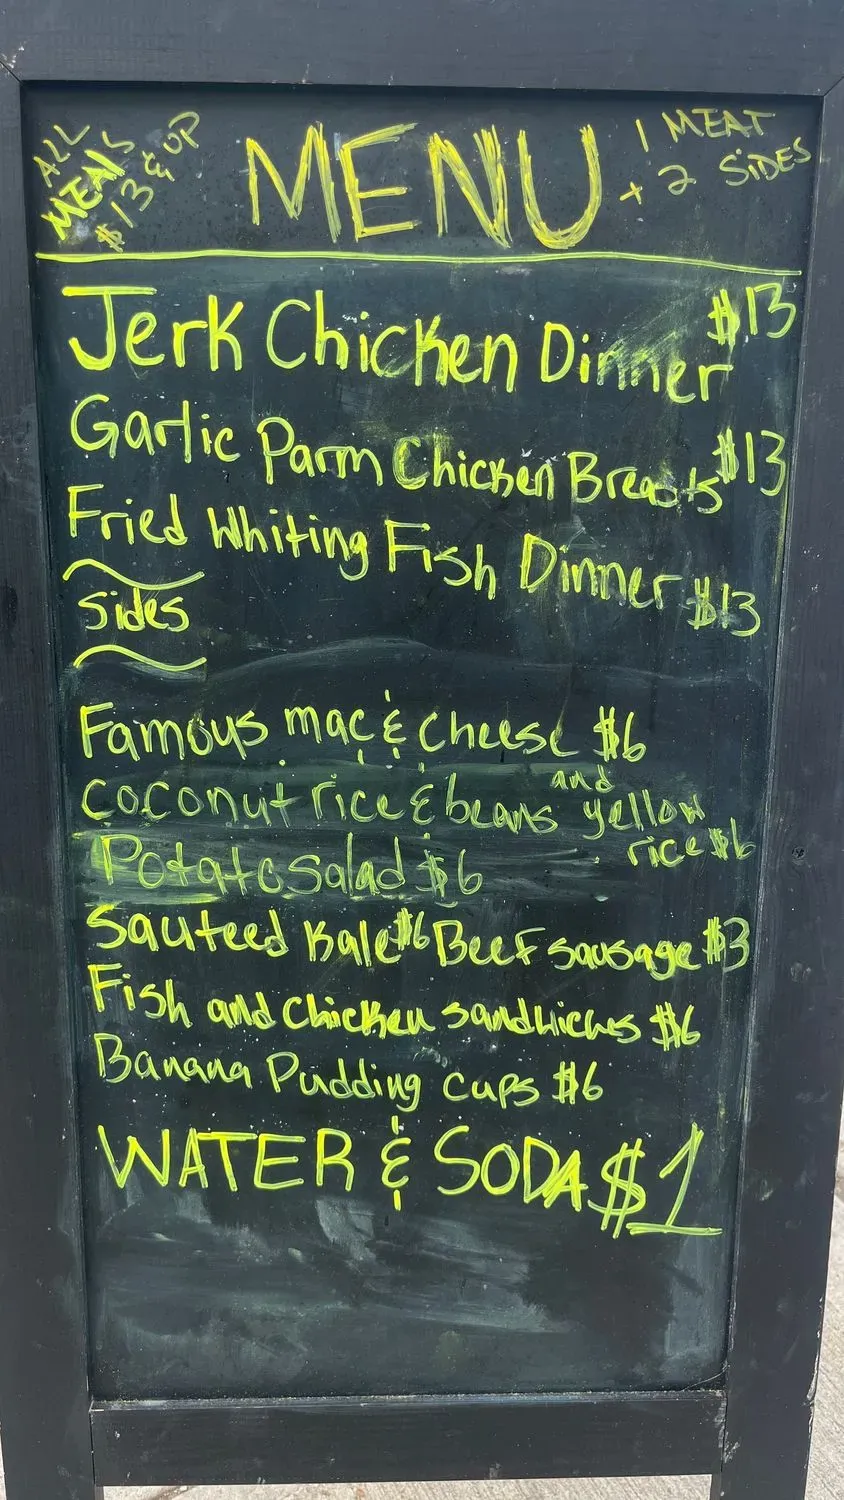 ALL
MEALS
$13 & UP
MENU
1 MEAT
+ 2 SIDES
Jerk Chicken Dinner $13
Garlic Parm Chicken Breasts $13
Fried Whiting Fish Dinner $13
Sides
Famous mac & cheese $6
coconut rice & beans and yellow
rice $6
Potato Salad $6
Sauteed Kale $6 Beef sausage $3
Fish and Chicken sandwiches $6
Banana Pudding cups $6
WATER & SODA $1